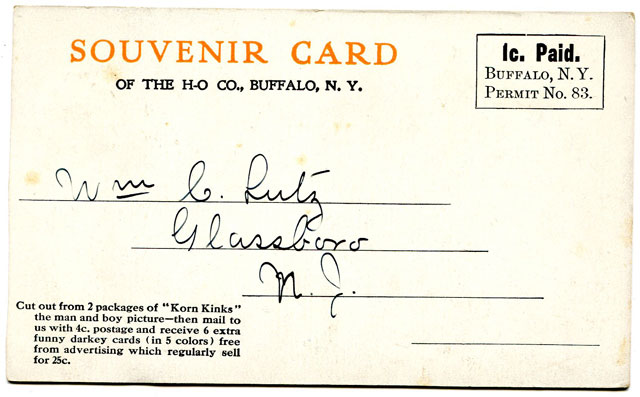 SOUVENIR CARD
OF THE H-O CO., BUFFALO, N. Y.
1c. Paid.
BUFFALO, N. Y.
PERMIT NO. 83.
Wm C. Lutz
Glassboro
N. J.
Cut out from 2 packages of "Korn Kinks"
the man and boy picture—then mail to
us with 4c. postage and receive 6 extra
funny darkey cards (in 5 colors) free
from advertising which regularly sell
for 25c.